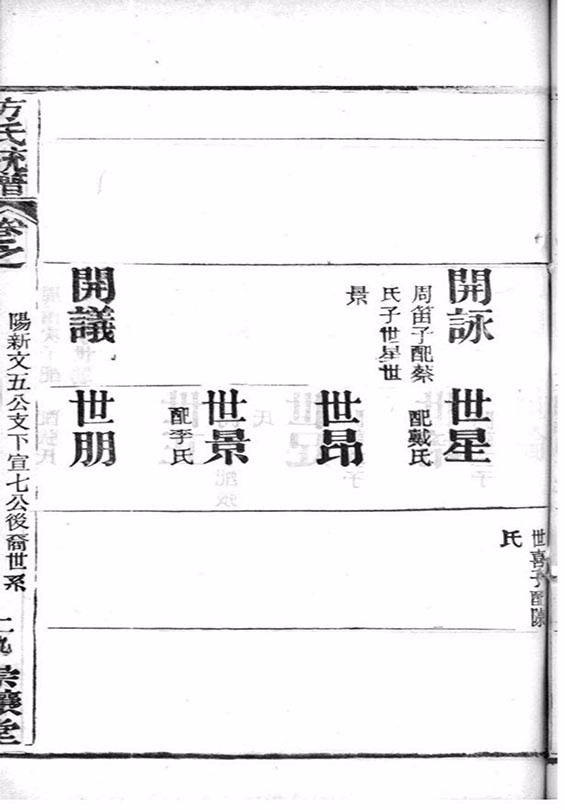 世喜子配陳
氏
開詠
周笛子配蔡
氏子世星世
景
世星
配戴氏
世昂
世景
配李氏
開議
世朋
方氏統譜
卷之
陽新文五公支下宣七公後裔世系
二九
崇讓堂